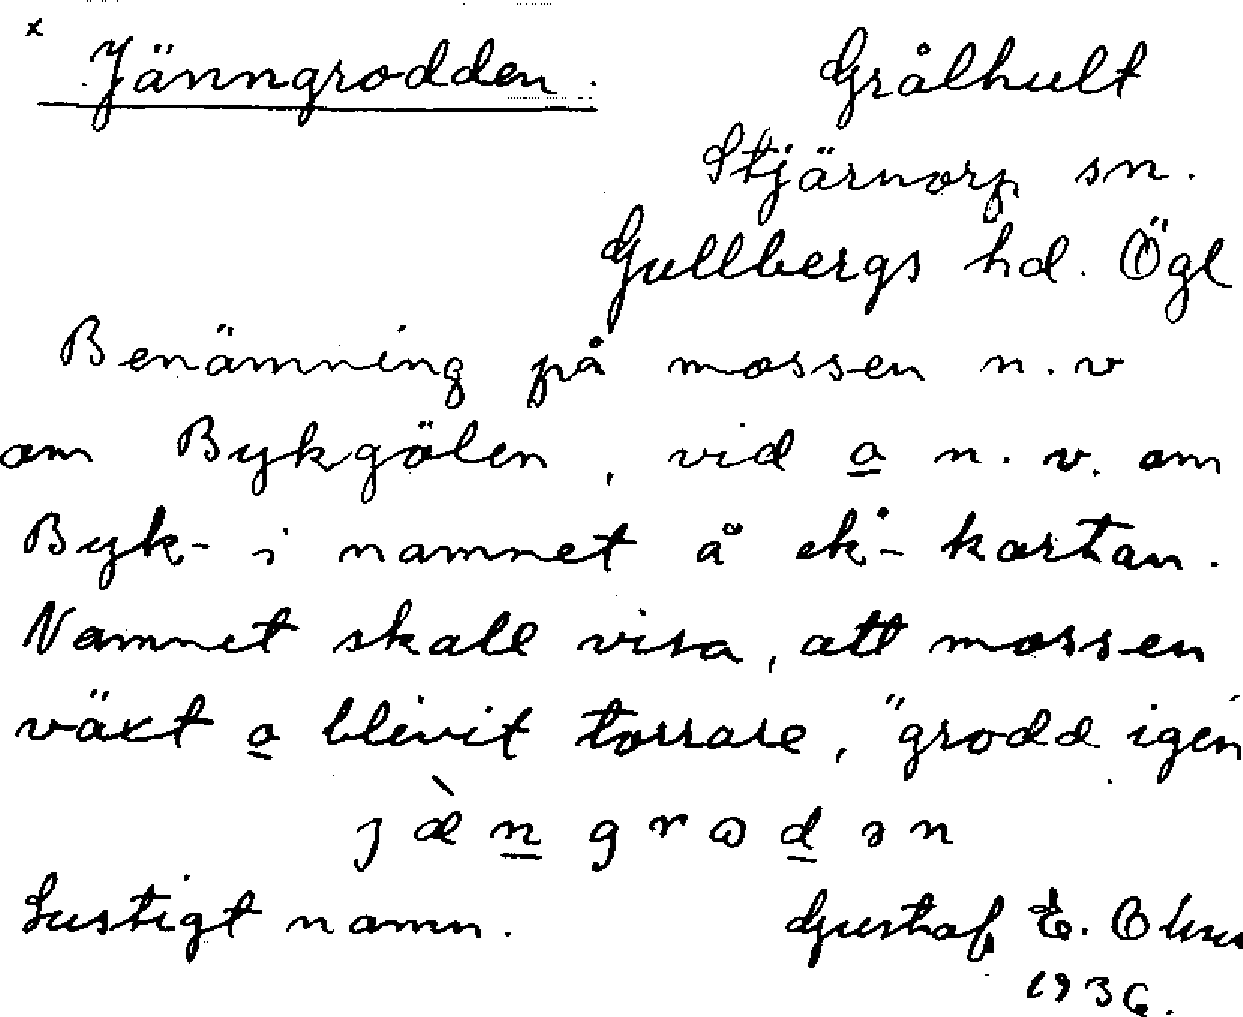 x Jänngrodden. Grålhult
Stjärnorp sn.
Gullbergs hd. Ögl
Benämning på mossen n.v
om Bykgölen, vid o n.v. om
Byk- i namnet å ek-kartan.
Namnet skall visa, att mossen
växt o blivit torrare, "grodd igen
jæ̀n̲grɷd̲ən
Lustigt namn. Gustaf E.
1936.